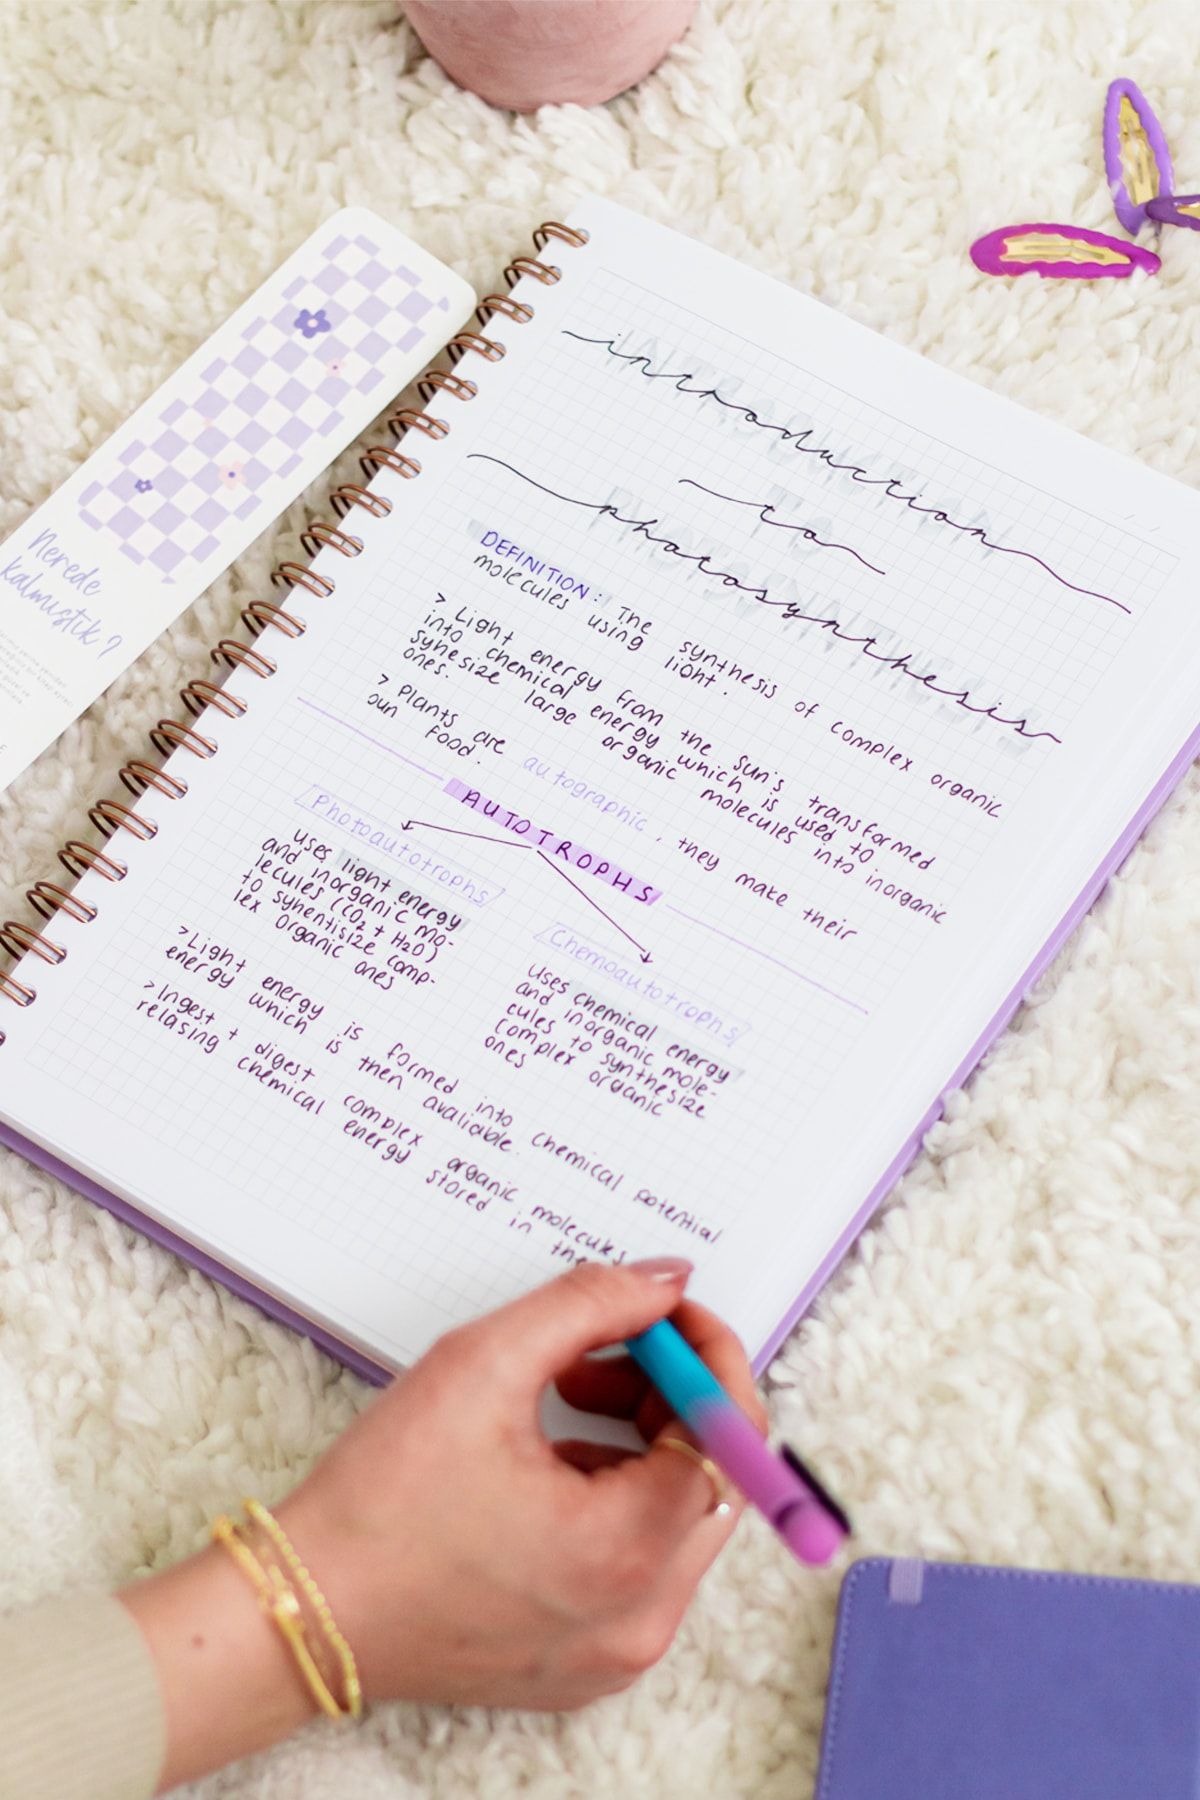 Nerede
kalmıştık?
introduction
to
photosynthesis
DEFINITION: The synthesis of complex organic
molecules using light.
> Light energy from the sun's transformed
into chemical energy which is used to
synesize large organic molecules into inorganic
ones.
> Plants are autographic, they make their
oun food.
AUTOTROPHS
Photoautotrophs
uses light energy
and inorganic mo-
lecules (CO₂ + H₂O)
to synentisize comp-
lex organic ones
Chemoautotrophs
Uses chemical energy
and inorganic mole-
cules to synthesize
complex organic
ones
> Light energy is formed into chemical potential
energy which is then avaliable.
> Ingest + digest complex organic molecules
relasing chemical energy stored in the